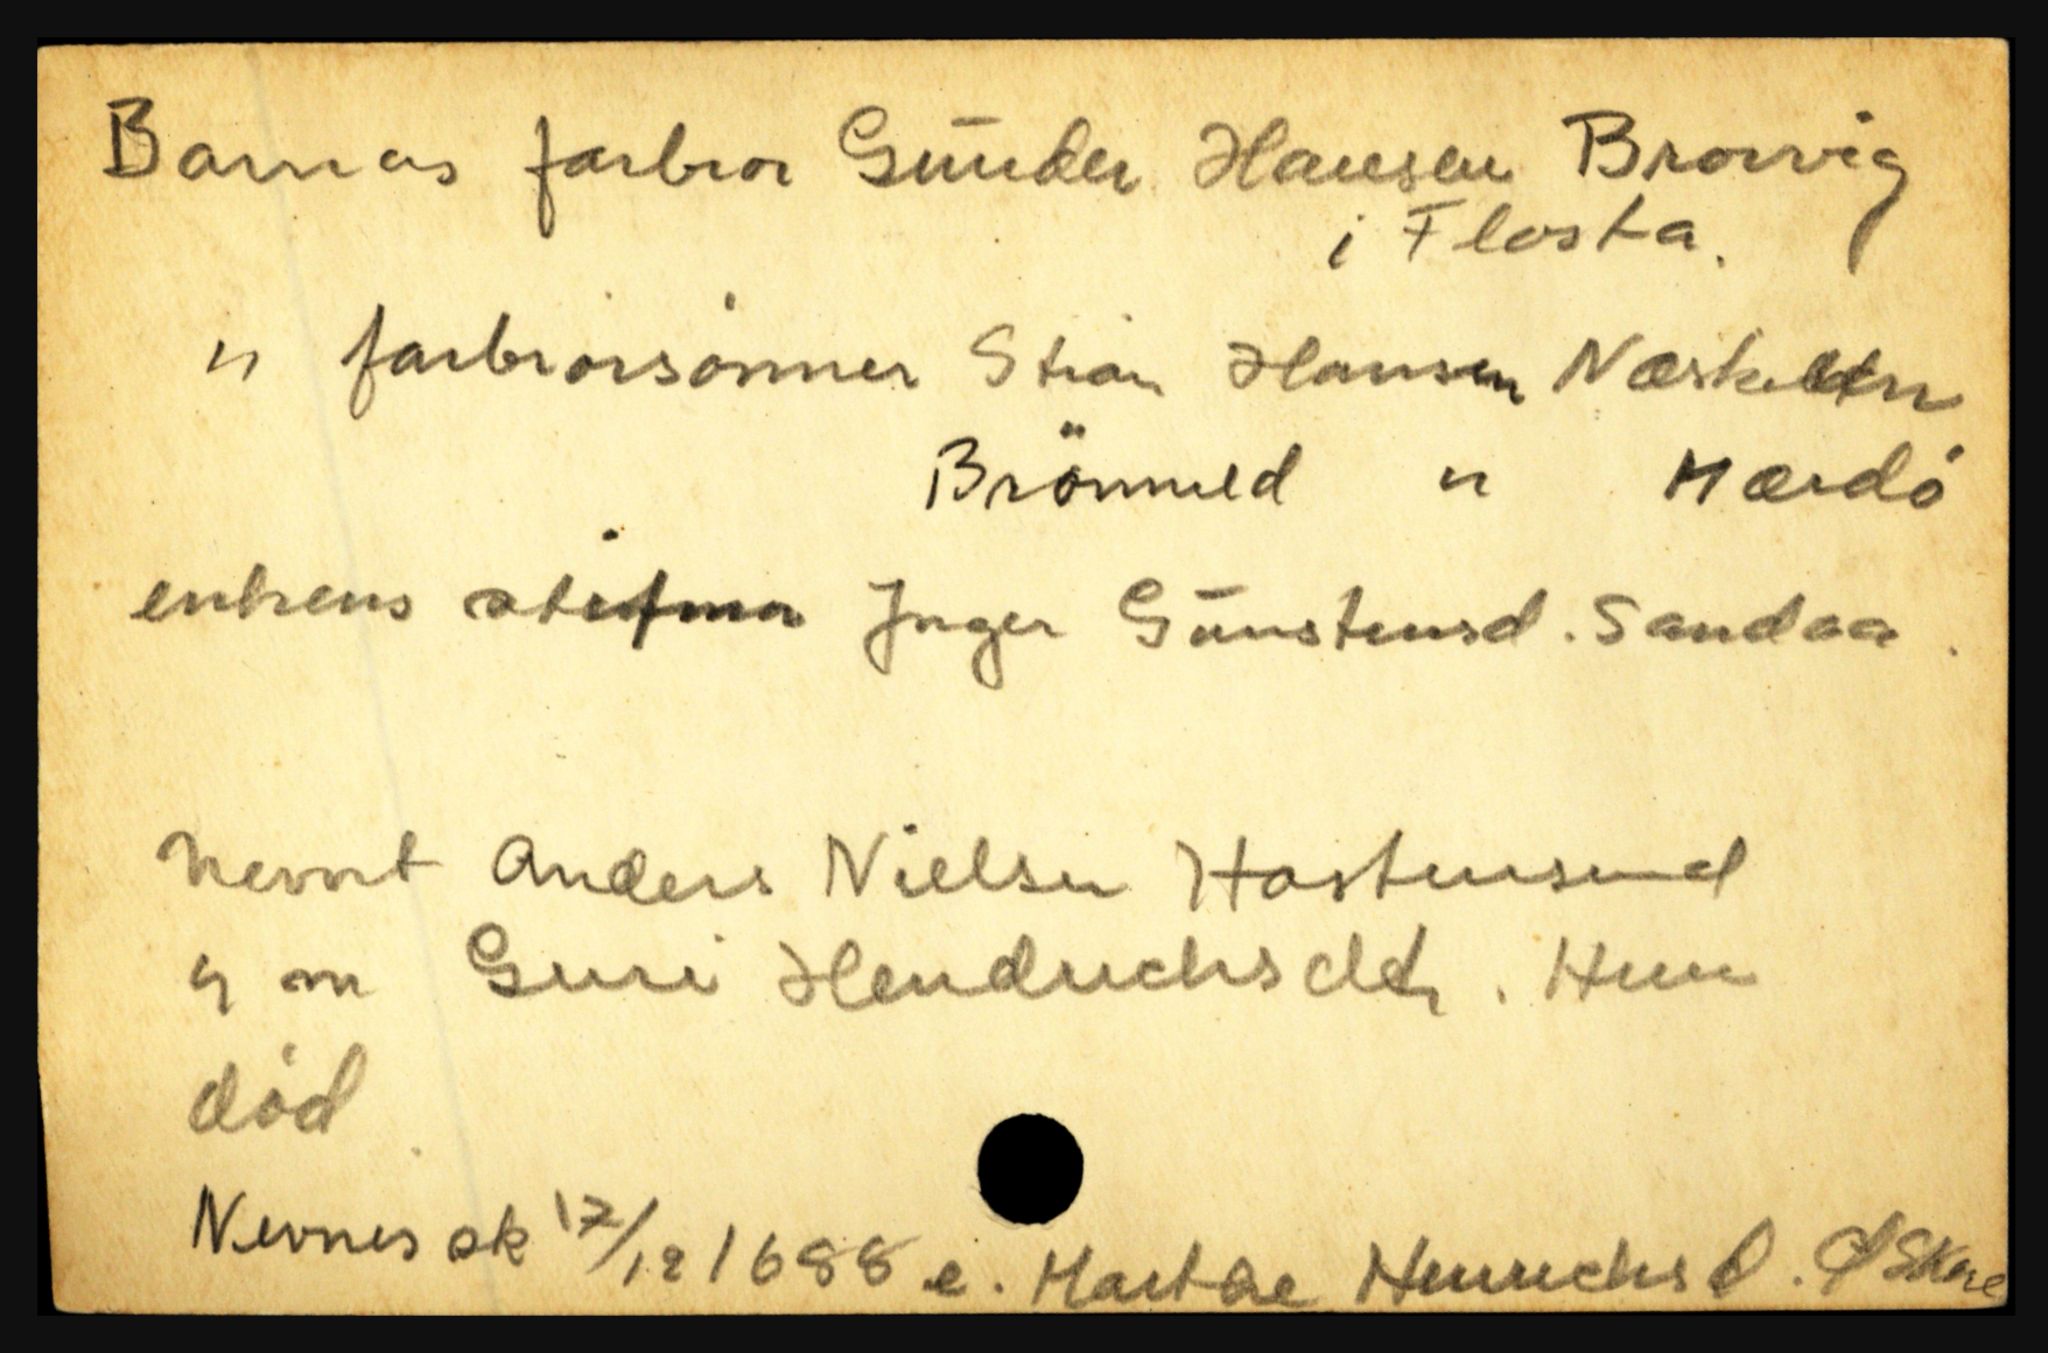 Barnas farbror Gunder Hansen Browig
i Flosta.
" farbrorsønner Stian Hansen Næskilen
Brönnild " Mærdó
enkens stifmor Inger Gunstensd. Sandaa.
Nevnt Anders Nielsen Hastensund
g m Guri Hendrichsdtr. Hun
død
Nevnes sk 17/12 1688 e. Marthe Henrichs d.